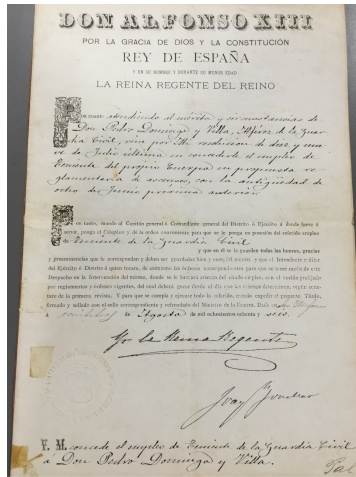 DON ALFONSO XIII
POR LA GRACIA DE DIOS Y LA CONSTITUCIÓN
REY DE ESPAÑA
Y EN SU NOMBRE Y DURANTE SU MENOR EDAD
LA REINA REGENTE DEL REINO
Por cuanto atendiendo al mérito y circunstancias de
Don Pedro Domingo y Villa, Alférez de la Guar
dia Civil, vine por Mi resolucion de diez y nue
ve de Julio último en concederle el empleo de
Teniente del propio Cuerpo en propuesta re
glamentaria de ascensos, con la antigüedad de
ocho de Junio próximo anterior.
Por tanto, mando al Capitán general ó Comandante general del Distrito ó Ejército á donde fuere á
servir, ponga el Cúmplase y dé la orden conveniente para que se le ponga en posesión del referido empleo
de Teniente de la Guardia Civil
y que en él se le guarden todas las honras, gracias
y preeminencias que le corresponden y deben ser guardadas bien y cumplidamente; y que el Intendente militar
del Ejército ó Distrito á quien tocare, dé asimismo las órdenes correspondientes para que se tome razón de este
Despacho en la Intervención del mismo, donde se le formará asiento del citado empleo, con el sueldo prefijado
por reglamentos y órdenes vigentes, del cual deberá gozar desde el día que las mismas determinen, según cons-
tare de la primera revista. Y para que se cumpla y ejecute todo lo referido, mandé expedir el presente Título,
firmado y sellado con el sello correspondiente y refrendado del Ministro de la Guerra. Dado en San Ildefonso
á veintidos de Agosto de mil ochocientos ochenta y seis.
Yo la Reina Regente
V. M. concede el empleo de Teniente de la Guardia Civil
á Don Pedro Domingo y Villa.